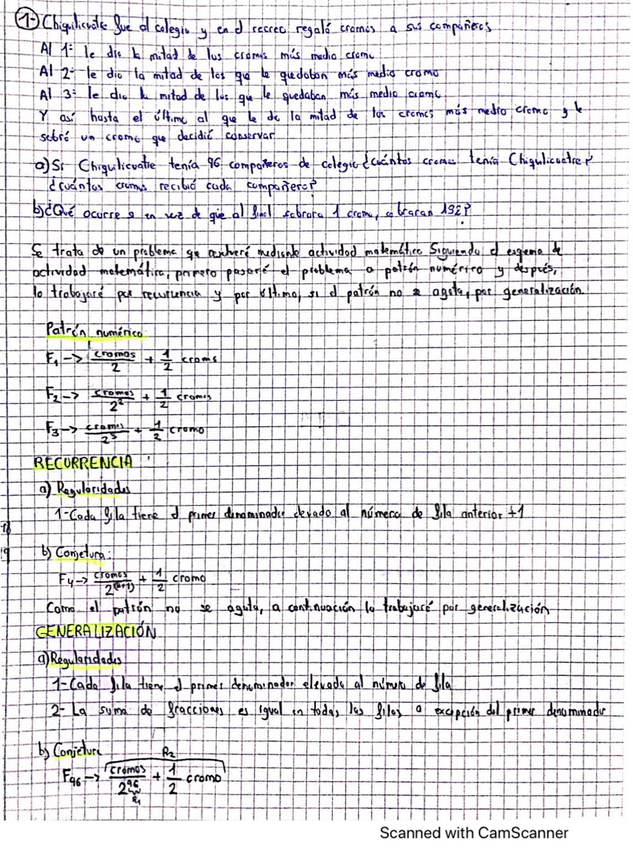 1- Chiquilicuatre fue al colegio y en el recreo regaló cromos a sus compañeros
Al 1º le dio la mitad de los cromos más medio cromo
Al 2º le dio la mitad de los que le quedaban más medio cromo
Al 3º le dio la mitad de los que le quedaban más medio cromo
Y así hasta el último al que le da la mitad de los cromos más medio cromo y le
sobró un cromo que decidió conservar
a) Si Chiquilicuatre tenía 96 compañeros de colegio ¿cuántos cromos tenía Chiquilicuatre?
¿cuántos cromos recibió cada compañero?
b) ¿Qué ocurre si en vez de que al final sobrara 1 cromo, sobraran 192?
Se trata de un problema que resolveré mediante actividad matemática. Siguiendo el esquema de
actividad matemática, primero pasaré el problema a patrón numérico y después,
lo trabajaré por recurrencia y por último, si el patrón no se agota, por generalización.
Patrón numérico
F₁ -> cromos/2 + 1/2 cromo
F₂ -> cromos/2² + 1/2 cromos
F₃ -> cromos/2³ + 1/2 cromo
RECURRENCIA
a) Regularidades
1- Cada fila tiene el primer denominador elevado al número de fila anterior +1
18
19
b) Conjetura:
F₄ -> cromos/2^(3+1) + 1/2 cromo
Como el patrón no se agota, a continuación lo trabajaré por generalización
GENERALIZACIÓN
a) Regularidades
1- Cada fila tiene el primer denominador elevado al número de fila
2- La suma de fracciones es igual en todas las filas a excepción del primer denominador
b) Conjetura
R₂
F₉₆ -> cromos/2⁹⁶ + 1/2 cromo
R₁
Scanned with CamScanner